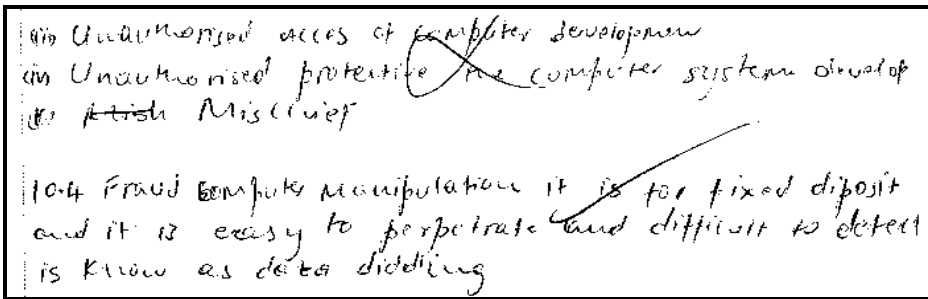 (ii) Unauthorised acces of computer developmen
(iii) Unauthorised protective the computer system develop
Mischief
10.4 Fraud computer manipulation it is for fixed diposit
and it is easy to perpetrate and difficult to detect
is know as data diddling